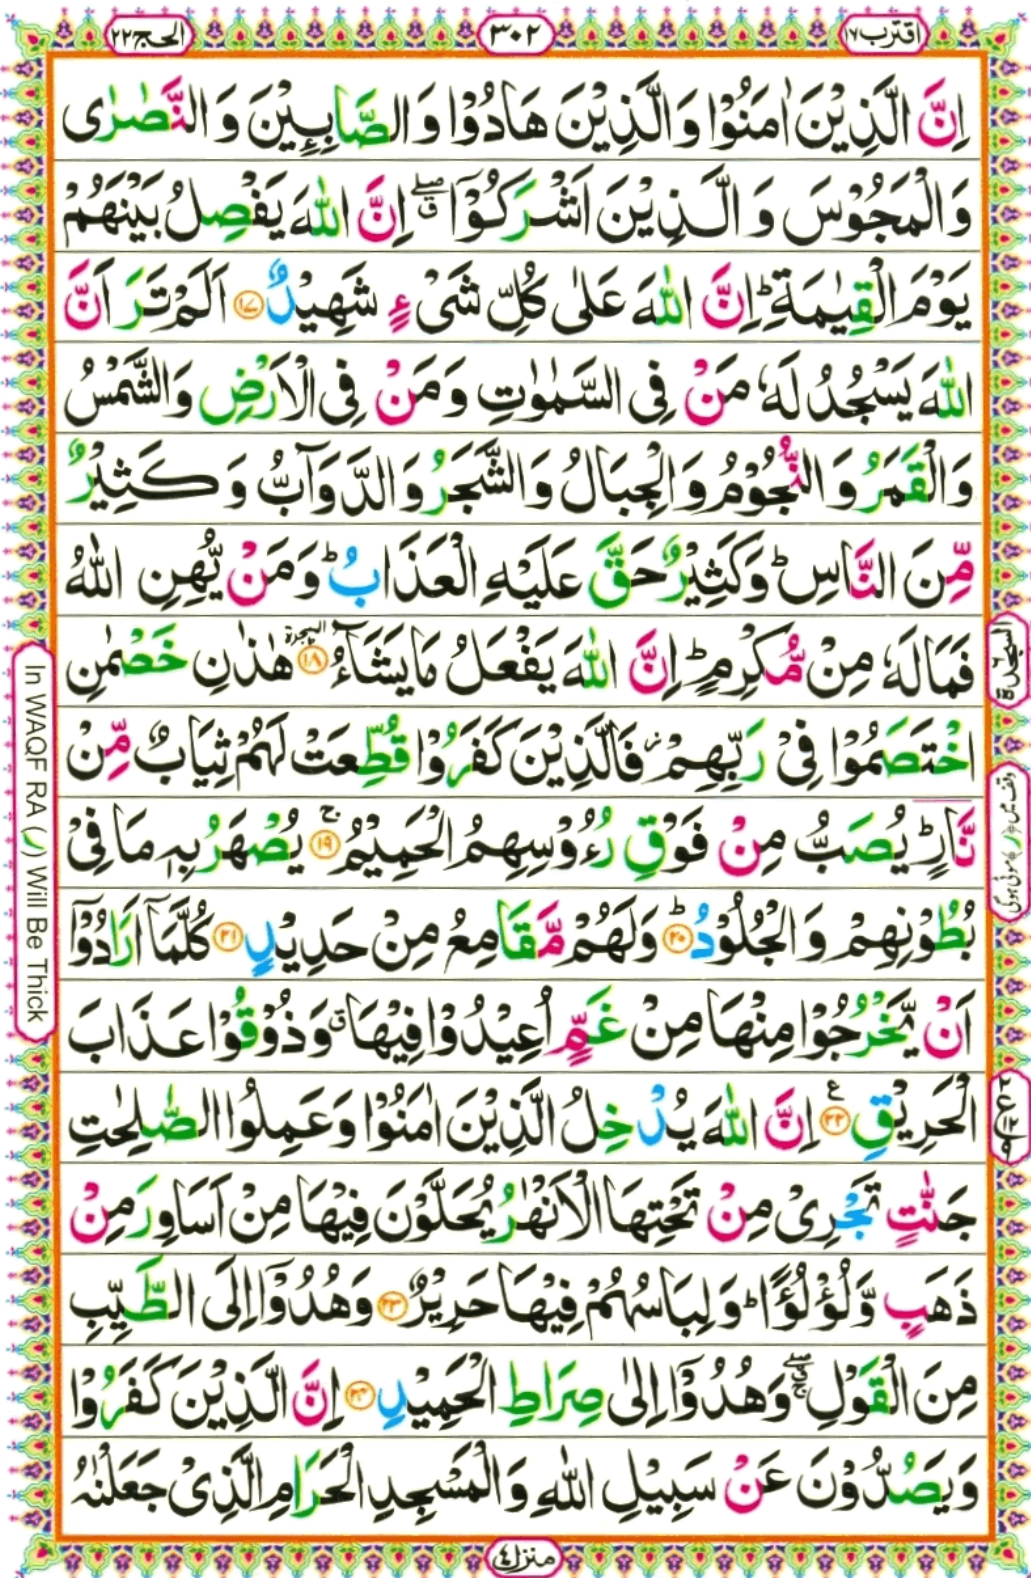 اقترب ١٧
٣٠٢
الحج ٢٢
اِنَّ الَّذِیْنَ اٰمَنُوْا وَالَّذِیْنَ هَادُوْا وَ الصَّابِـِٕیْنَ وَ النَّصٰرٰی
وَالْمَجُوْسَ وَ الَّذِیْنَ اَشْرَكُوْۤا ۖۗ اِنَّ اللّٰهَ یَفْصِلُ بَیْنَهُمْ
یَوْمَ الْقِیٰمَةِ ؕ اِنَّ اللّٰهَ عَلٰی كُلِّ شَیْءٍ شَهِیْدٌ ۝۱۷ اَلَمْ تَرَ اَنَّ
اللّٰهَ یَسْجُدُ لَهٗ مَنْ فِی السَّمٰوٰتِ وَ مَنْ فِی الْاَرْضِ وَالشَّمْسُ
وَالْقَمَرُ وَ النُّجُوْمُ وَ الْجِبَالُ وَ الشَّجَرُ وَ الدَّوَآبُّ وَ كَثِیْرٌ
مِّنَ النَّاسِ ؕ وَ كَثِیْرٌ حَقَّ عَلَیْهِ الْعَذَابُ ؕ وَ مَنْ یُّهِنِ اللّٰهُ
فَمَا لَهٗ مِنْ مُّكْرِمٍ ؕ اِنَّ اللّٰهَ یَفْعَلُ مَا یَشَآءُ ۝۱۸ السجدة هٰذٰنِ خَصْمٰنِ
اخْتَصَمُوْا فِیْ رَبِّهِمْ ؗ فَالَّذِیْنَ كَفَرُوْا قُطِّعَتْ لَهُمْ ثِیَابٌ مِّنْ
نَّارٍ ؕ یُصَبُّ مِنْ فَوْقِ رُءُوْسِهِمُ الْحَمِیْمُ ۝۱۹ۚ یُصْهَرُ بِهٖ مَا فِیْ
بُطُوْنِهِمْ وَ الْجُلُوْدُ ۝۲۰ؕ وَ لَهُمْ مَّقَامِعُ مِنْ حَدِیْدٍ ۝۲۱ كُلَّمَاۤ اَرَادُوْۤا
اَنْ یَّخْرُجُوْا مِنْهَا مِنْ غَمٍّ اُعِیْدُوْا فِیْهَا ۗ وَ ذُوْقُوْا عَذَابَ
الْحَرِیْقِ ۝۲۲ ع اِنَّ اللّٰهَ یُدْخِلُ الَّذِیْنَ اٰمَنُوْا وَ عَمِلُوا الصّٰلِحٰتِ
جَنّٰتٍ تَجْرِیْ مِنْ تَحْتِهَا الْاَنْهٰرُ یُحَلَّوْنَ فِیْهَا مِنْ اَسَاوِرَ مِنْ
ذَهَبٍ وَّ لُؤْلُؤًا ؕ وَ لِبَاسُهُمْ فِیْهَا حَرِیْرٌ ۝۲۳ وَ هُدُوْۤا اِلَی الطَّیِّبِ
مِنَ الْقَوْلِ ۖۗۚ وَ هُدُوْۤا اِلٰی صِرَاطِ الْحَمِیْدِ ۝۲۴ اِنَّ الَّذِیْنَ كَفَرُوْا
وَ یَصُدُّوْنَ عَنْ سَبِیْلِ اللّٰهِ وَ الْمَسْجِدِ الْحَرَامِ الَّذِیْ جَعَلْنٰهُ
منزل ٤
السجدة
وقف میں (ر) موٹی ہوگی
ع
In WAQF RA (ر) Will Be Thick